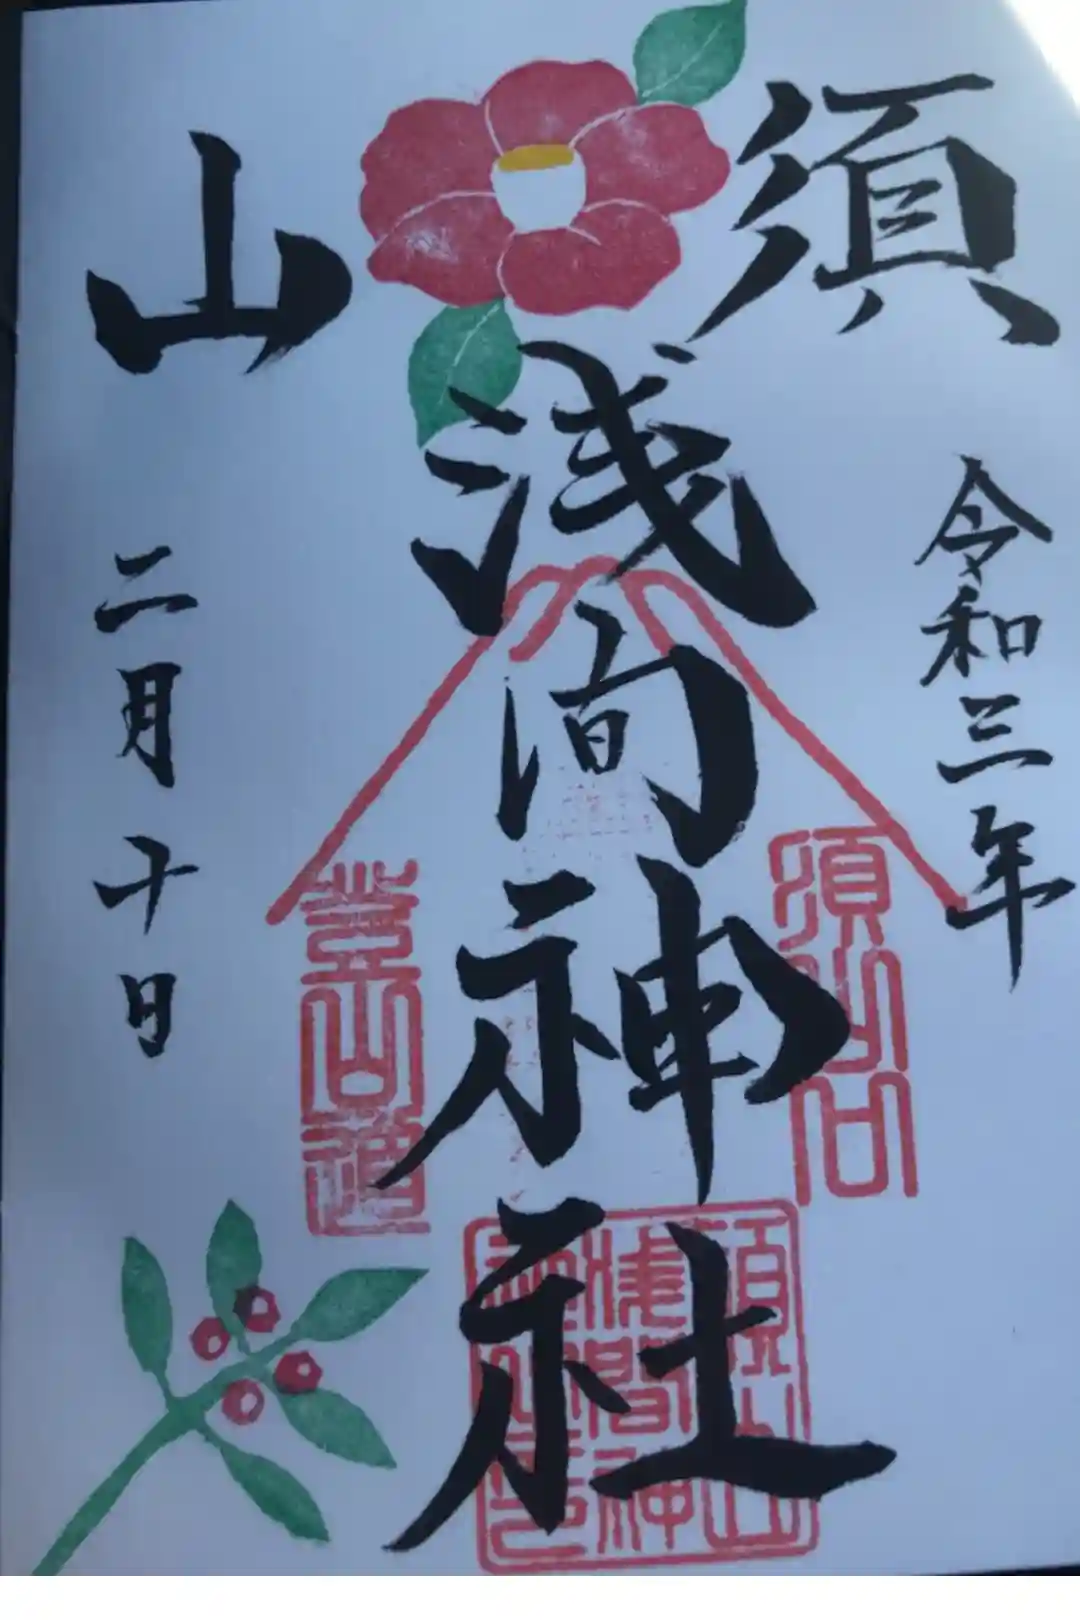 須山
浅間神社
令和三年
二月十日
須山口
登山道
須山
浅間神
社之印